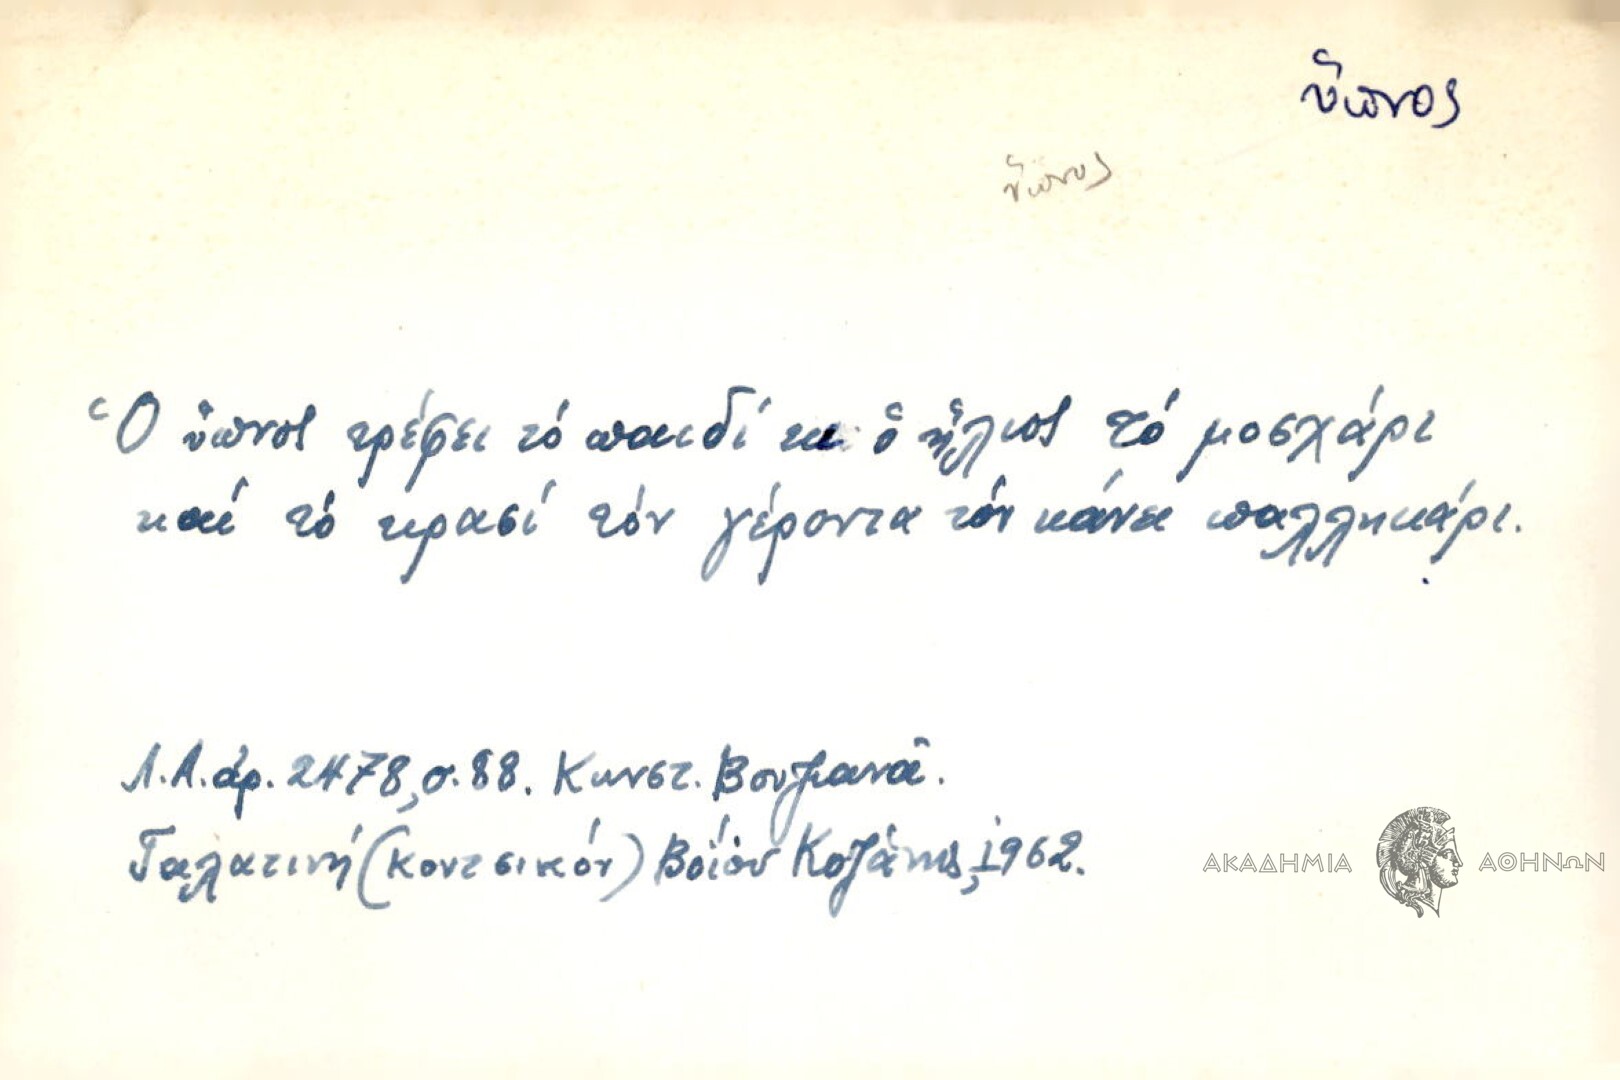 ὕπνος
ὕπνος
Ὁ ὕπνος τρέφει τό παιδί κι ὁ ἥλιος τό μοσχάρι
καί τό κρασί τόν γέροντα τόν κάνει παλληκάρι.
Λ.Α. ἀρ. 2478, σ. 88. Κωνστ. Βουζιανᾶ.
Γαλατινή (Κοντσικόν) Βοΐου Κοζάνης, 1962.
ΑΚΑΔΗΜΙΑ ΑΘΗΝΩΝ